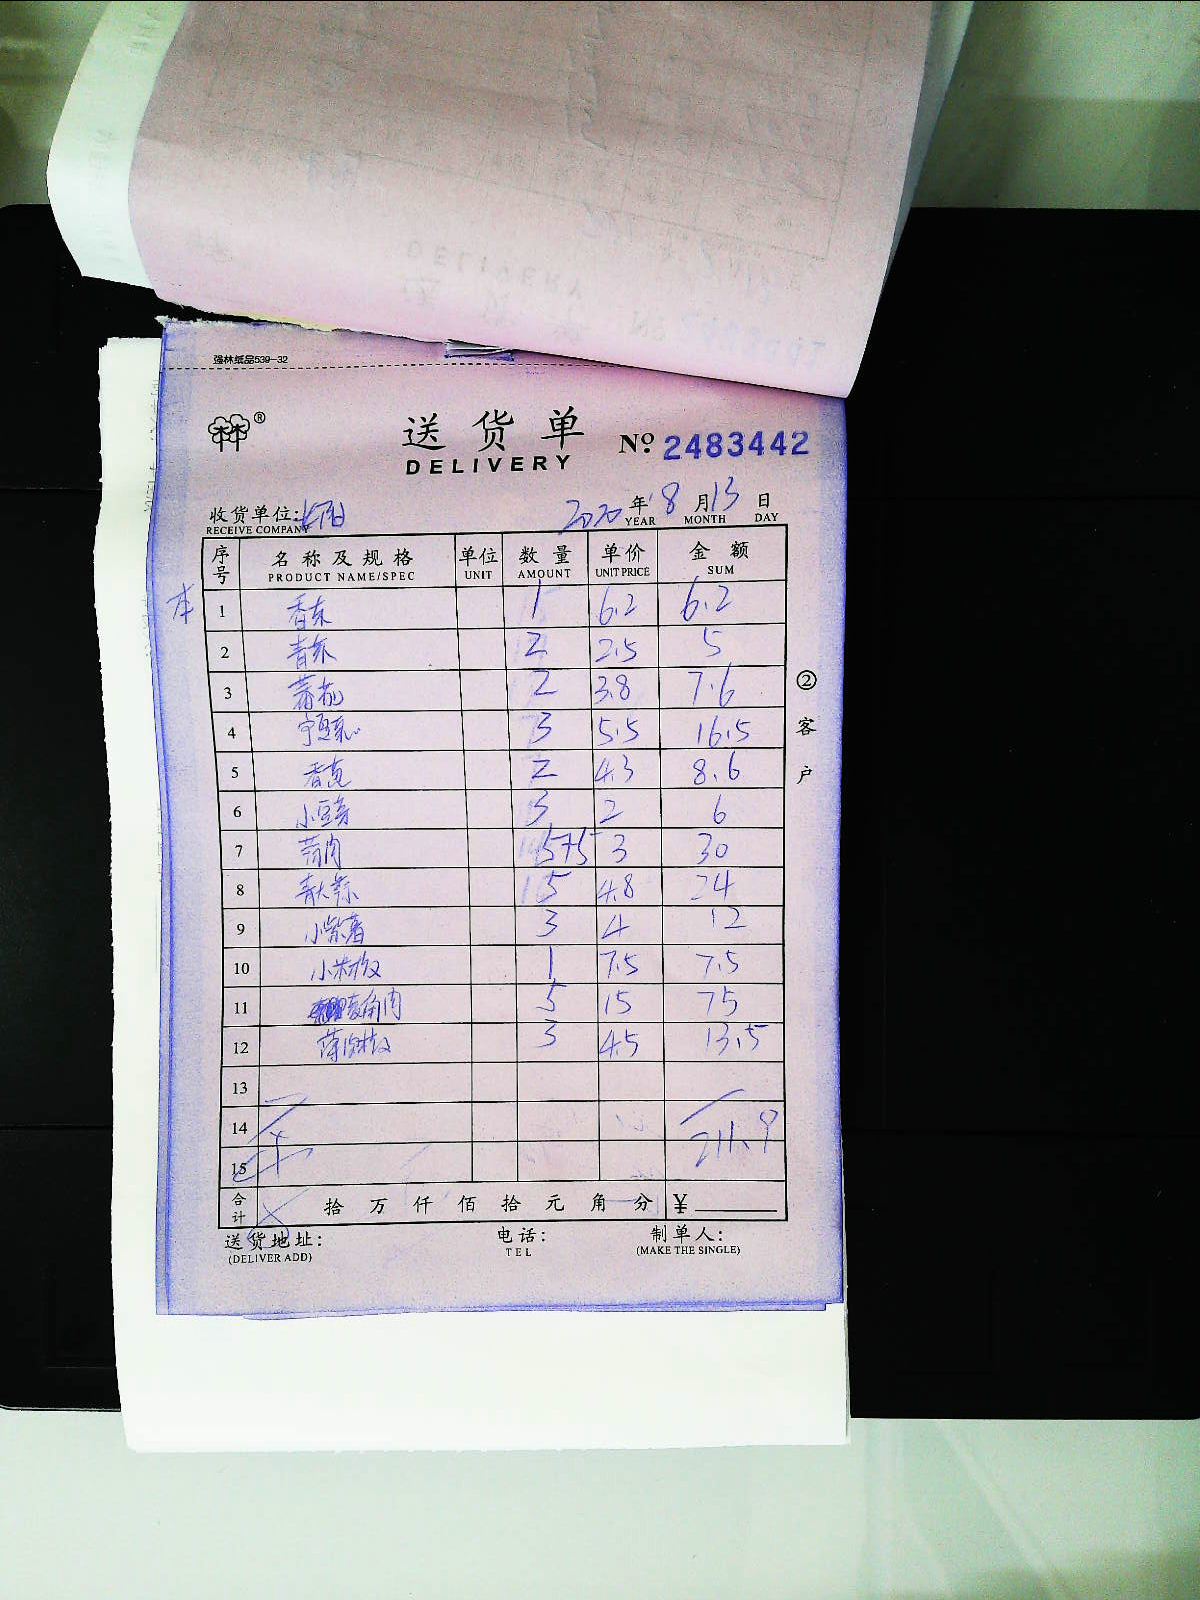 强林纸品539-32
送货单
DELIVERY
№ 2483442
收货单位:
RECEIVE COMPANY
2020年8月13日
YEAR MONTH DAY
序号 名称及规格 单位 数量 单价 金额
PRODUCT NAME/SPEC UNIT AMOUNT UNIT PRICE SUM
本
1 香菜 1 6.2 6.2
2 2 2.5 5
3 2 3.8 7.6
4 宁夏菜心 3 5.5 16.5
5 2 4.3 8.6
6 小豆芽 3 2 6
7 5+5 3 30
8 5 4.8 24
9 小紫薯 3 4 12
10 小米椒 1 7.5 7.5
11 菱角肉 5 15 75
12 3 4.5 13.5
13
14
15
211.9
合计 拾万仟佰拾元角分 ¥
送货地址:
(DELIVER ADD)
电话:
TEL
制单人:
(MAKE THE SINGLE)
②客户